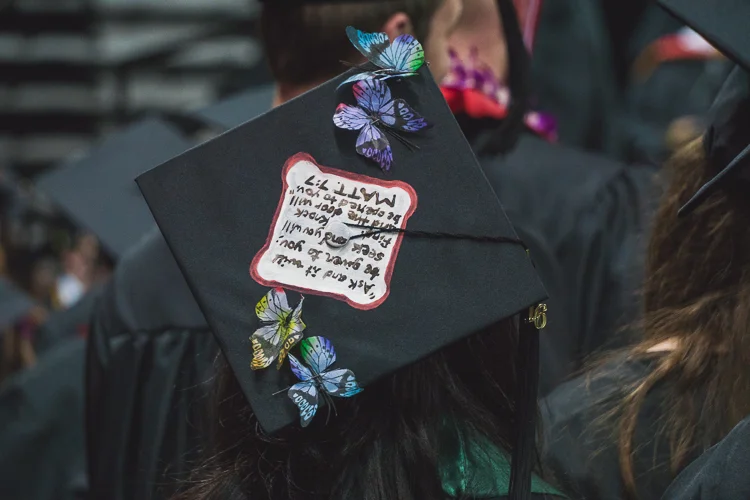 "Ask and it will
be given to you;
seek and you will
find; knock
and the door will
be opened to you"
MATT. 7:7